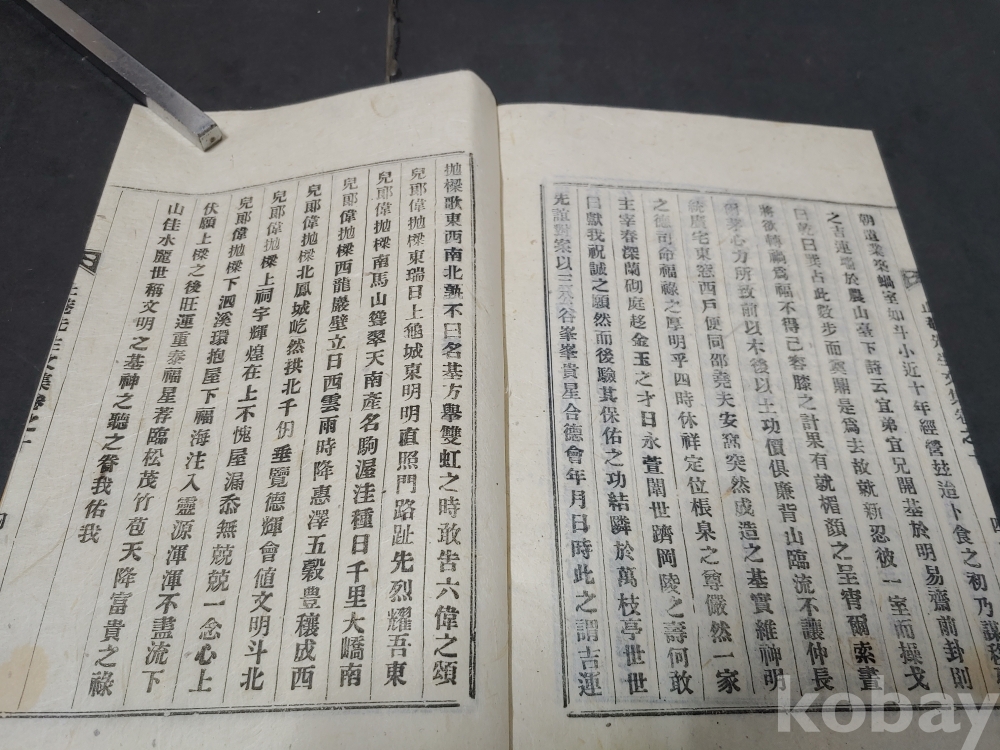 朝遺業築蝸室如斗小近十年經營玆迨卜食之初乃謀
之吉運瑞於農山臺下詩云宜弟宜兄開基於明易齋前卦則
曰乾曰巽占此數步而寒關是爲去故就新忍彼一室而操戈
將欲轉禍爲福不得已容膝之計果有就楣顔之呈宵爾索晝
茅心力所致前以木後以土功價俱廉背山臨流不讓仲長
統廣宅東窓西戶便同邵堯夫安窩突然成造之基實維神明
之德司命福祿之厚明乎四時休祥定位帳泉之尊儼然一家
主宰春深蘭砌庭趍金玉之才日永萱闈世躋岡陵之壽何敢
曰獻我祝誠之願然而後驗其保佑之功結隣於萬枝亭世世
先誼對案以三公谷峯峯貴星合德會年月日時此之謂吉運
拋樑歌東西南北孰不曰名基方擧雙虹之時敢告六偉之頌
兒郞偉拋樑東瑞日上鵵城東明明直照門路趾先烈耀吾東
兒郞偉拋樑南馬山聳翠天南產名駒渥洼種日千里大嶠南
兒郞偉拋樑西龍巖壁立日西雲雨時降惠澤五穀豊穰成西
兒郞偉拋樑北鳳城屹然拱北千仞垂覽德輝會値文明斗北
兒郞偉拋樑上祠宇輝煌在上不愧屋漏忝無兢兢一念心上
兒郞偉拋樑下泗溪環抱屋下福海注入靈源渾渾不盡流下
伏願上樑之後旺運重泰福星荐臨松茂竹苞天降富貴之祿
山佳水麗世稱文明之基神之聽之眷我佑我
先生文集卷之一
四
kobay